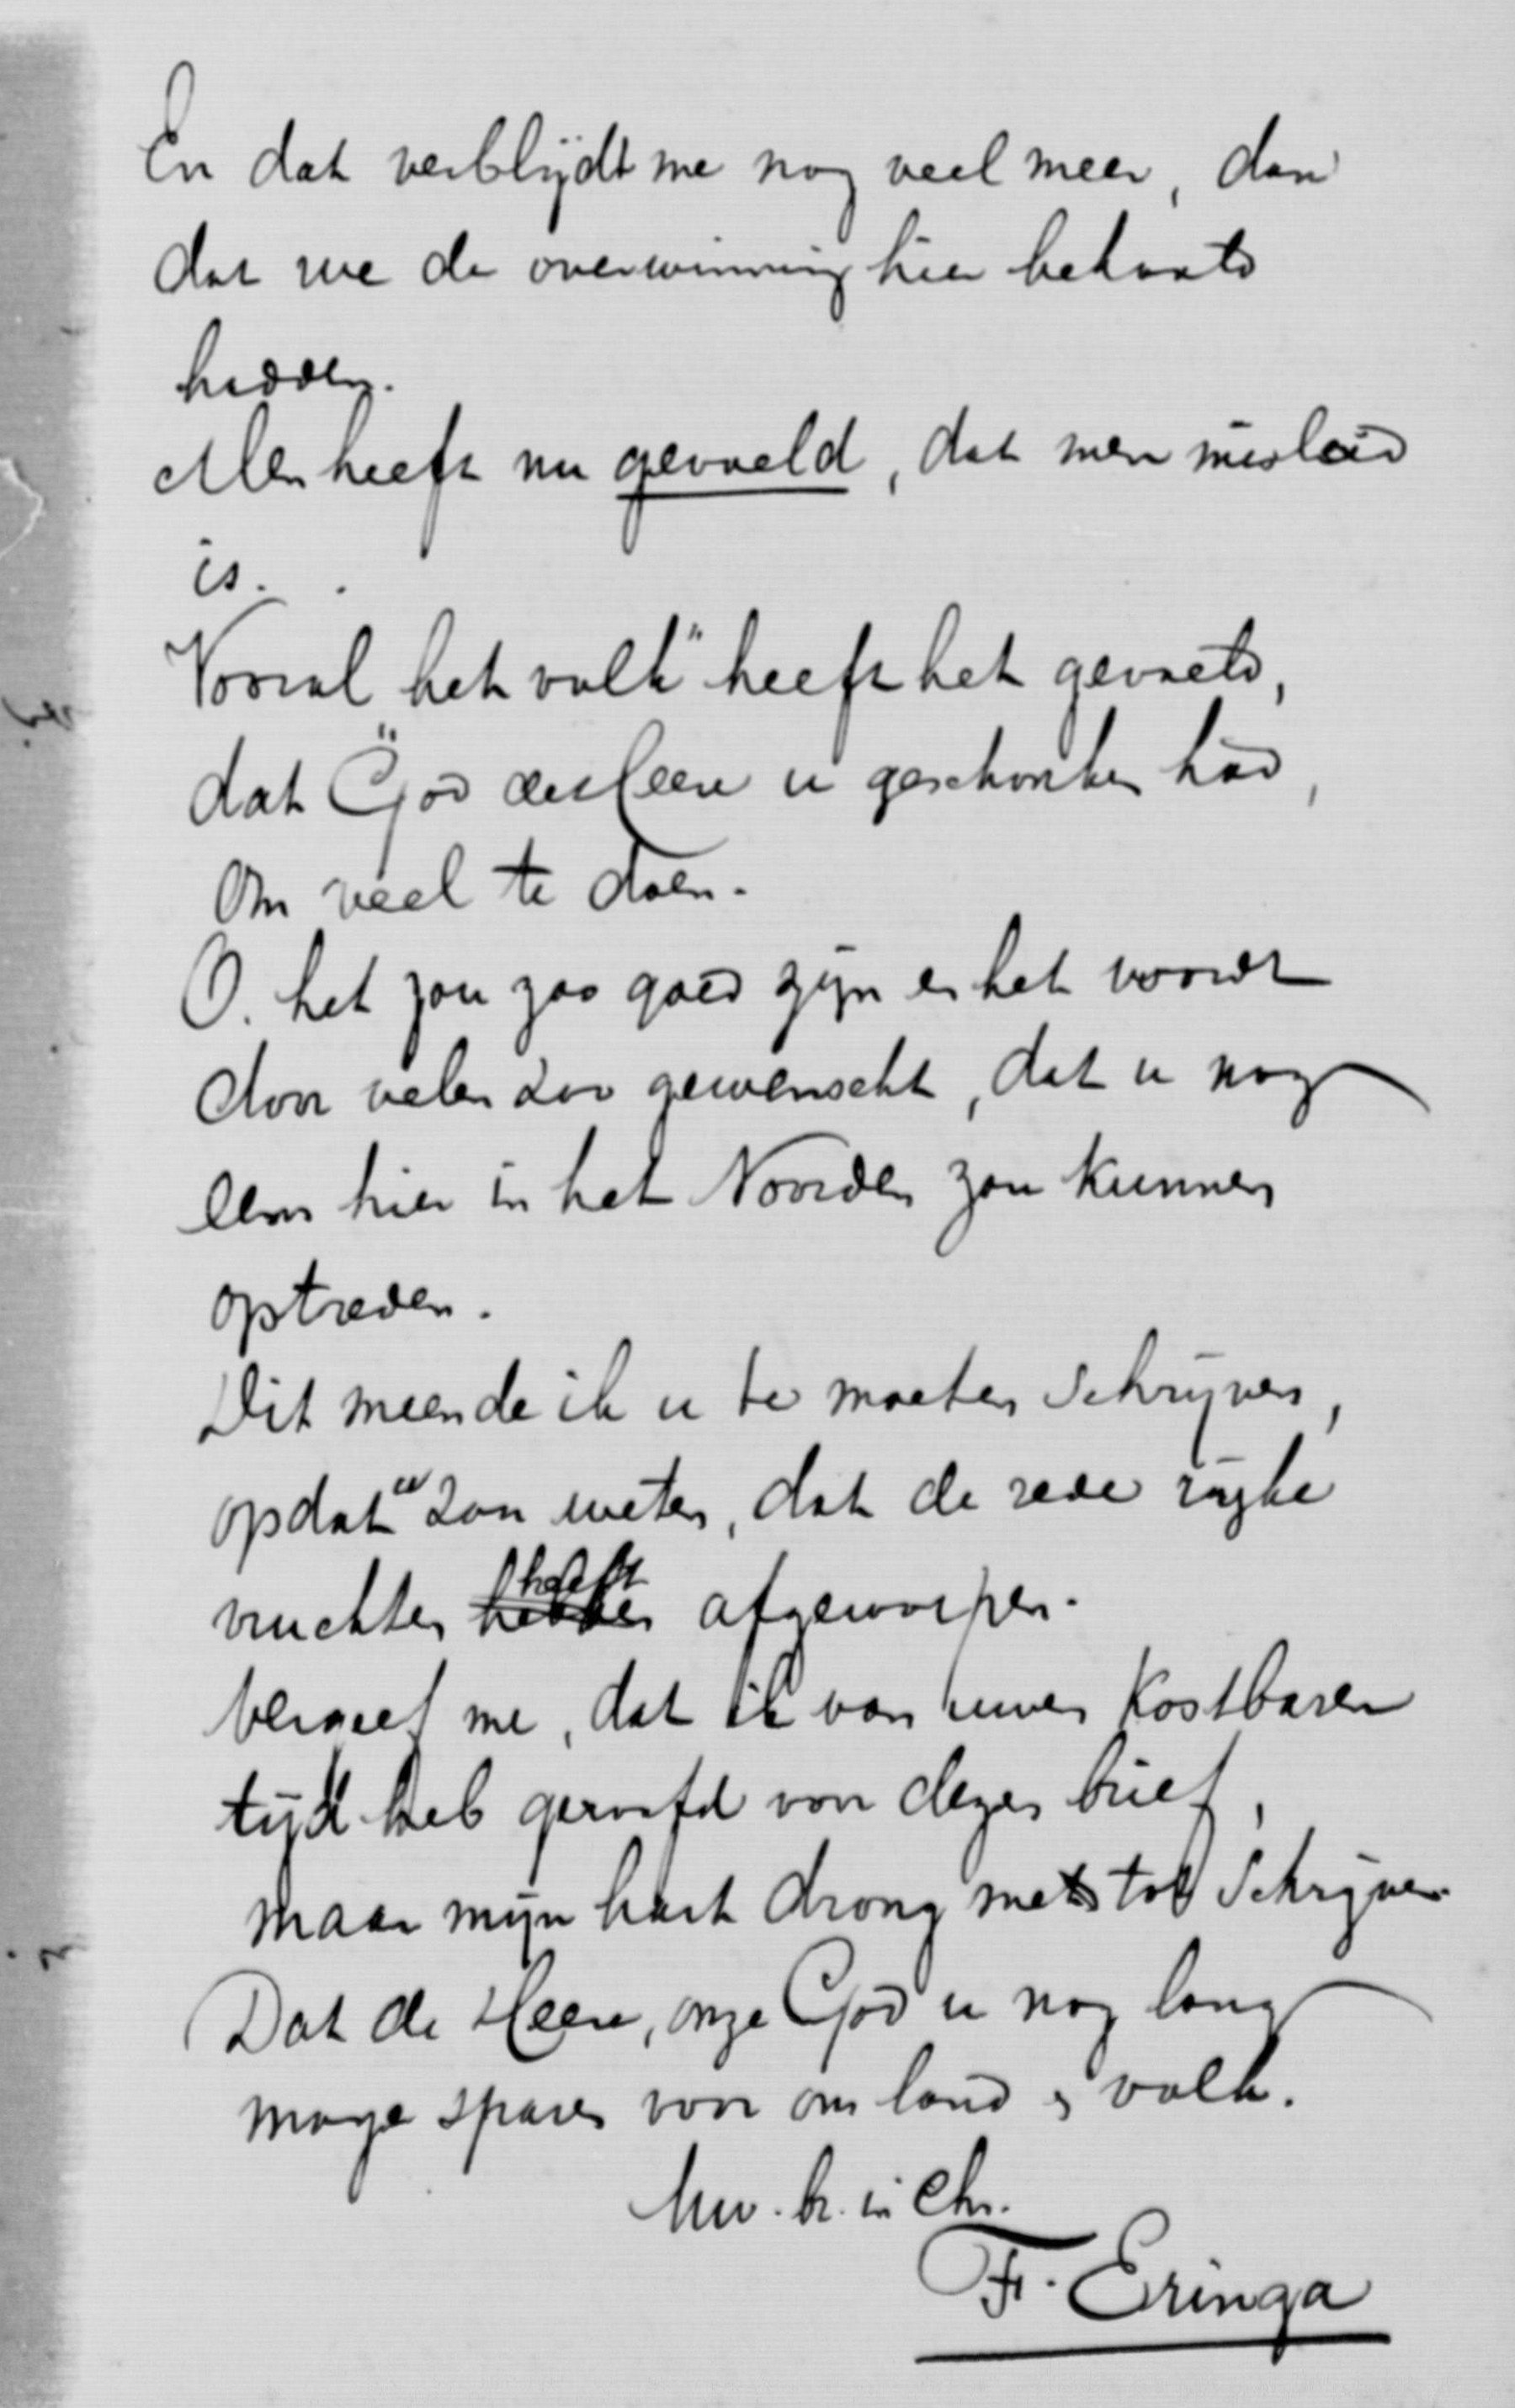 En dat verblijdt me nog veel meer, dan
dat we de overwinning hier behaald
hadden.
Men heeft nu gevoeld, dat men misleid
is.
Vooral het volk" heeft het gevoeld,
dat God de Heere u geschonken had,
om veel te doen.
O. het zou zoo goed zijn en het wordt
door velen zoo gewenscht, dat u nog
eens hier in het Noorden zou kunnen
optreden.
Dit meende ik u te moeten schrijven,
opdat u zou weten, dat de rede rijke
vruchten heeft afgeworpen.
Vergeef me, dat ik van uwen kostbaren
tijd heb geroofd voor dezen brief,
maar mijn hart drong me tot schrijven.
Dat de Heere, onze God u nog lang
moge sparen voor ons land en volk.
Uw. br. in Chr.
F. Eringa